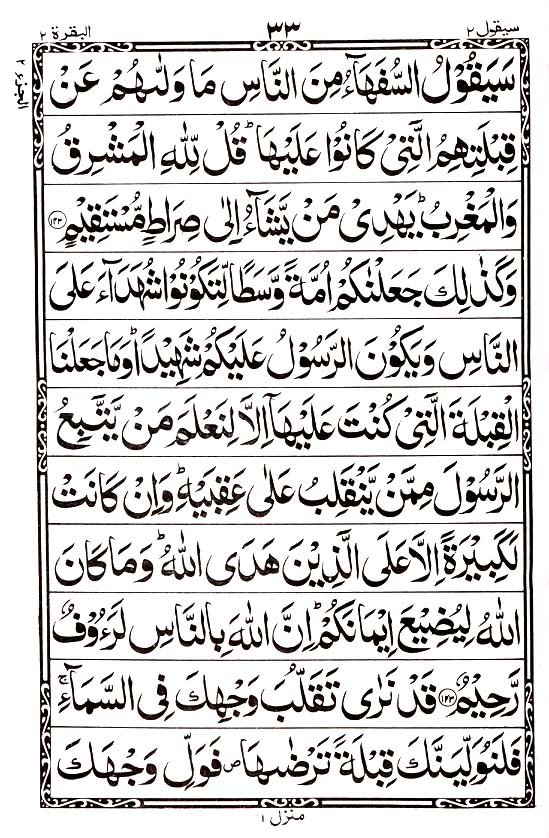 سيقول ٢ ٣٣ البقرة ٢
الجزء ٢
سَيَقُوْلُ السُّفَهَآءُ مِنَ النَّاسِ مَا وَلّٰىهُمْ عَنْ
قِبْلَتِهِمُ الَّتِيْ كَانُوْا عَلَيْهَا ؕ قُلْ لِّلّٰهِ الْمَشْرِقُ
وَالْمَغْرِبُ ؕ يَهْدِيْ مَنْ يَّشَآءُ اِلٰى صِرَاطٍ مُّسْتَقِيْمٍ ۝۱۴۲
وَكَذٰلِكَ جَعَلْنٰكُمْ اُمَّةً وَّسَطًا لِّتَكُوْنُوْا شُهَدَآءَ عَلَى
النَّاسِ وَيَكُوْنَ الرَّسُوْلُ عَلَيْكُمْ شَهِيْدًا ؕ وَمَا جَعَلْنَا
الْقِبْلَةَ الَّتِيْ كُنْتَ عَلَيْهَآ اِلَّا لِنَعْلَمَ مَنْ يَّتَّبِعُ
الرَّسُوْلَ مِمَّنْ يَّنْقَلِبُ عَلٰى عَقِبَيْهِ ؕ وَاِنْ كَانَتْ
لَكَبِيْرَةً اِلَّا عَلَى الَّذِيْنَ هَدَى اللّٰهُ ؕ وَمَا كَانَ
اللّٰهُ لِيُضِيْعَ اِيْمَانَكُمْ ؕ اِنَّ اللّٰهَ بِالنَّاسِ لَرَءُوْفٌ
رَّحِيْمٌ ۝۱۴۳ قَدْ نَرٰى تَقَلُّبَ وَجْهِكَ فِي السَّمَآءِ ۚ
فَلَنُوَلِّيَنَّكَ قِبْلَةً تَرْضٰىهَا ۪ فَوَلِّ وَجْهَكَ
منزل ١